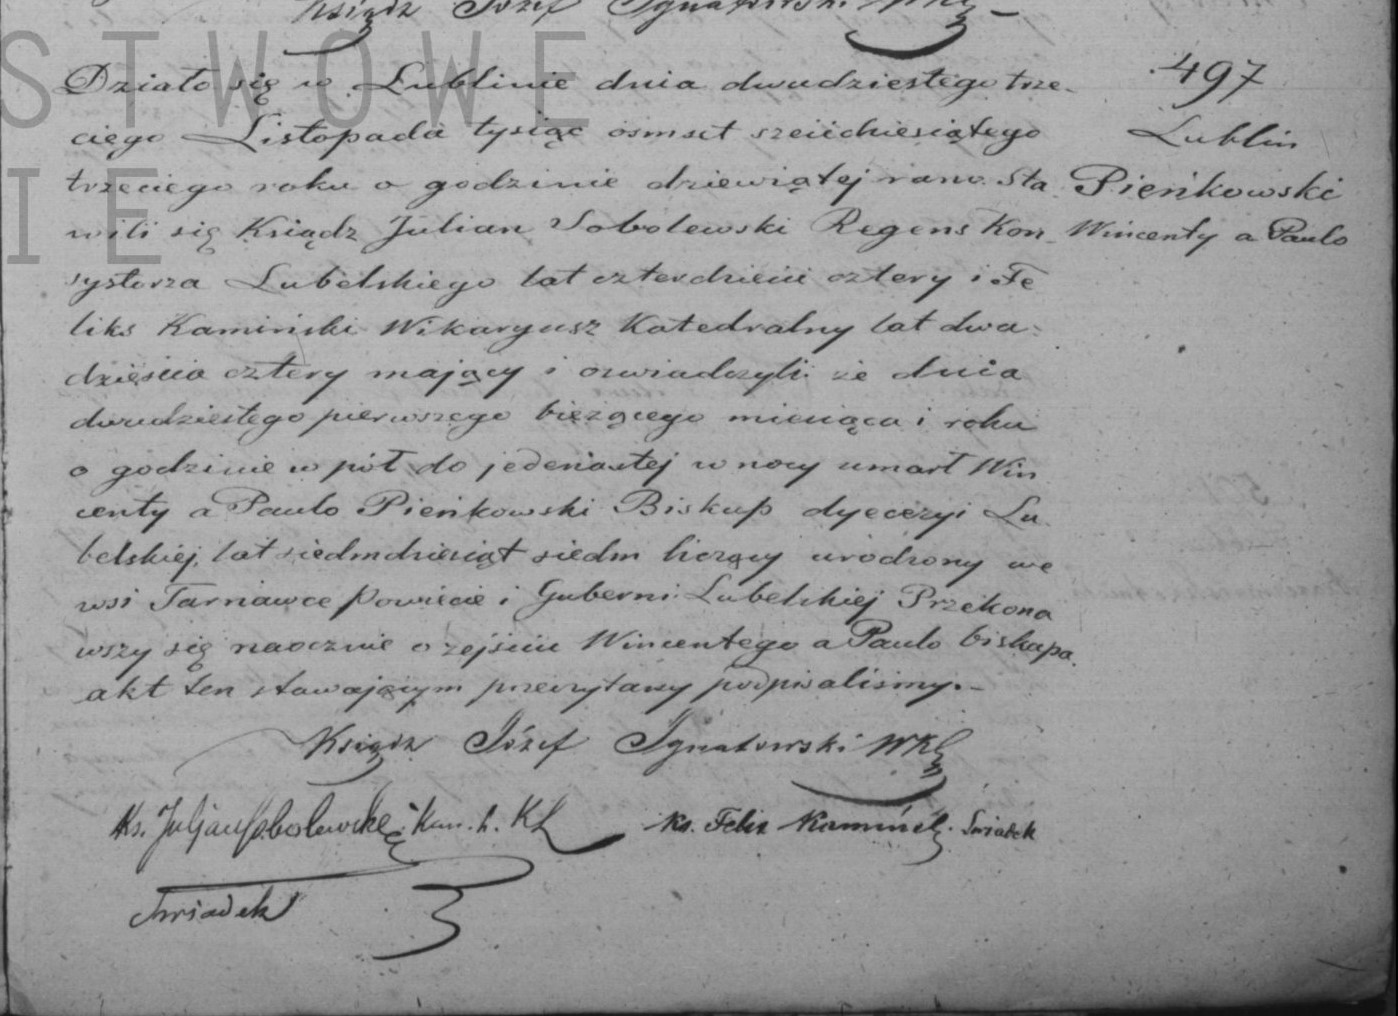 Ksiądz Józef Ignatowski WKL
STWOWE
IE
497
Lublin
Pieńkowski
Wincenty a Paulo
Działo się w Lublinie dnia dwudziestego trze-
ciego Listopada tysiąc ośmset sześćdziesiątego
trzeciego roku o godzinie dziewiątej rano Sta
wili się Ksiądz Julian Sobolewski Regens Kon-
systorza Lubelskiego lat czterdzieści cztery i Fe
liks Kamiński Wikaryusz Katedralny lat dwa-
dzieścia cztery mający i oświadczyli że dnia
dwudziestego pierwszego bieżącego miesiąca i roku
o godzinie w pół do jedenastej w nocy umarł Win
centy a Paulo Pieńkowski Biskup dyecezyi Lu
belskiej, lat siedmdziesiąt siedm liczący urodzony we
wsi Tarnawce Powiecie i Guberni Lubelskiej Przekona
wszy się naocznie o zejściu Wincentego a Paulo biskupa.
akt ten stawającym przeczytany podpisaliśmy.-
Ksiądz Józef Ignatowski WKL
Ks. Juljan Sobolewski Kan. h. KL Ks. Felix Kamiński. Świadek
Świadek